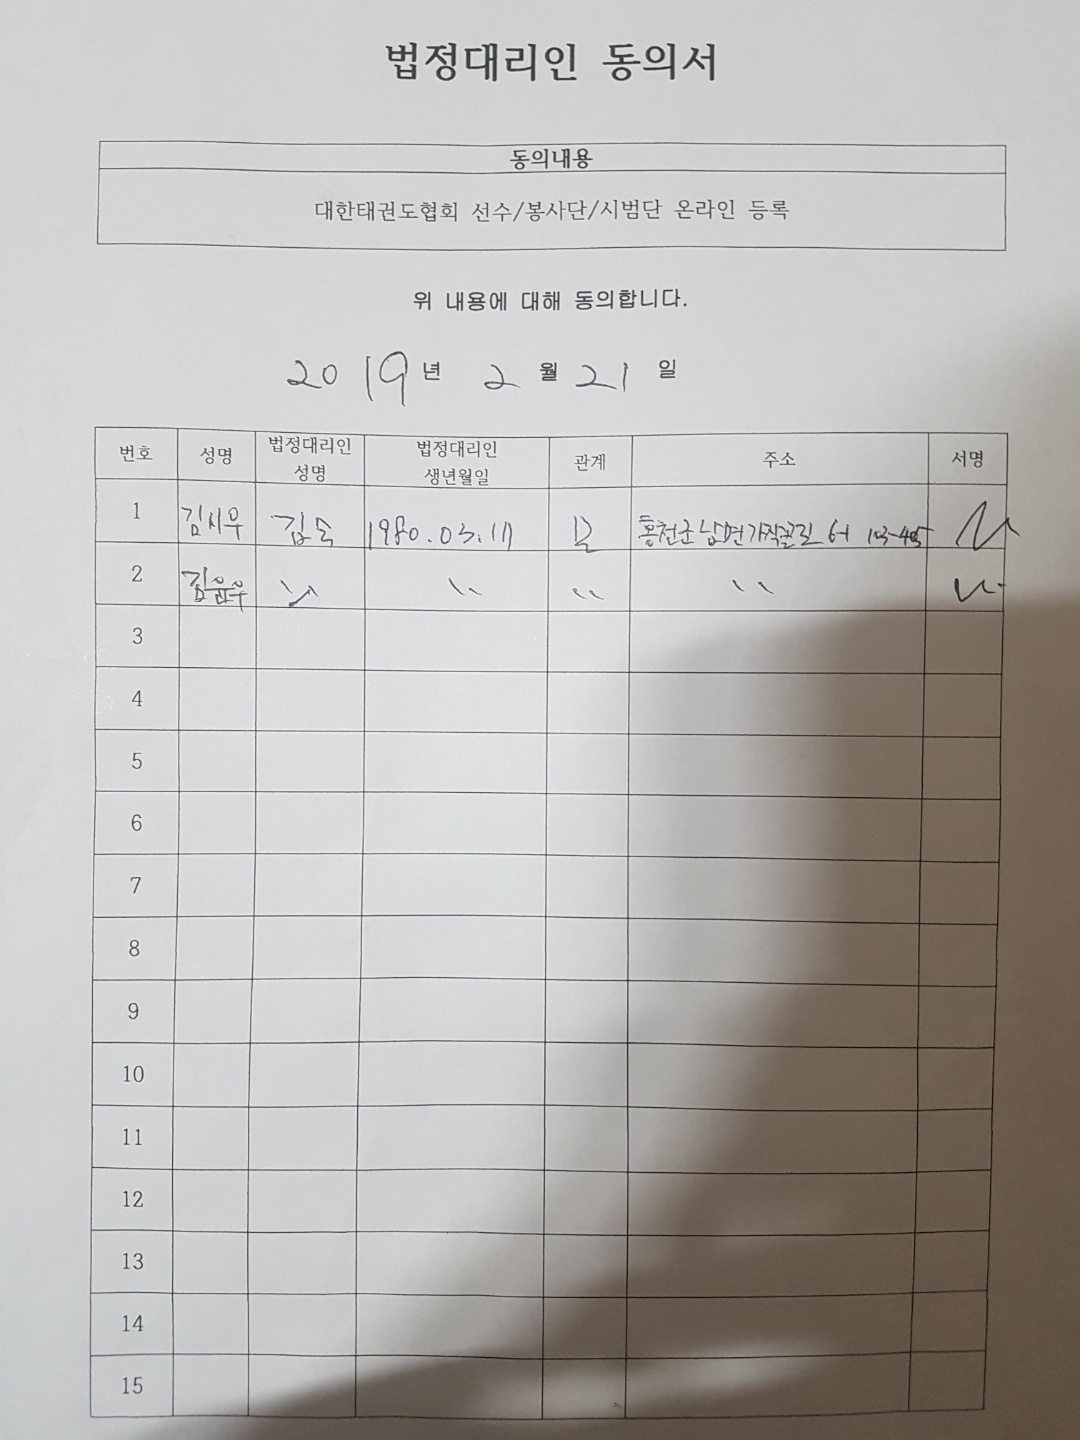 법정대리인 동의서
동의내용
대한태권도협회 선수/봉사단/시범단 온라인 등록
위 내용에 대해 동의합니다.
2019년 2월 21일
번호 성명 법정대리인 성명 법정대리인 생년월일 관계 주소 서명
1 김시우 1980.03.17 홍천군 남면
2 〃 〃 〃 〃
3
4
5
6
7
8
9
10
11
12
13
14
15